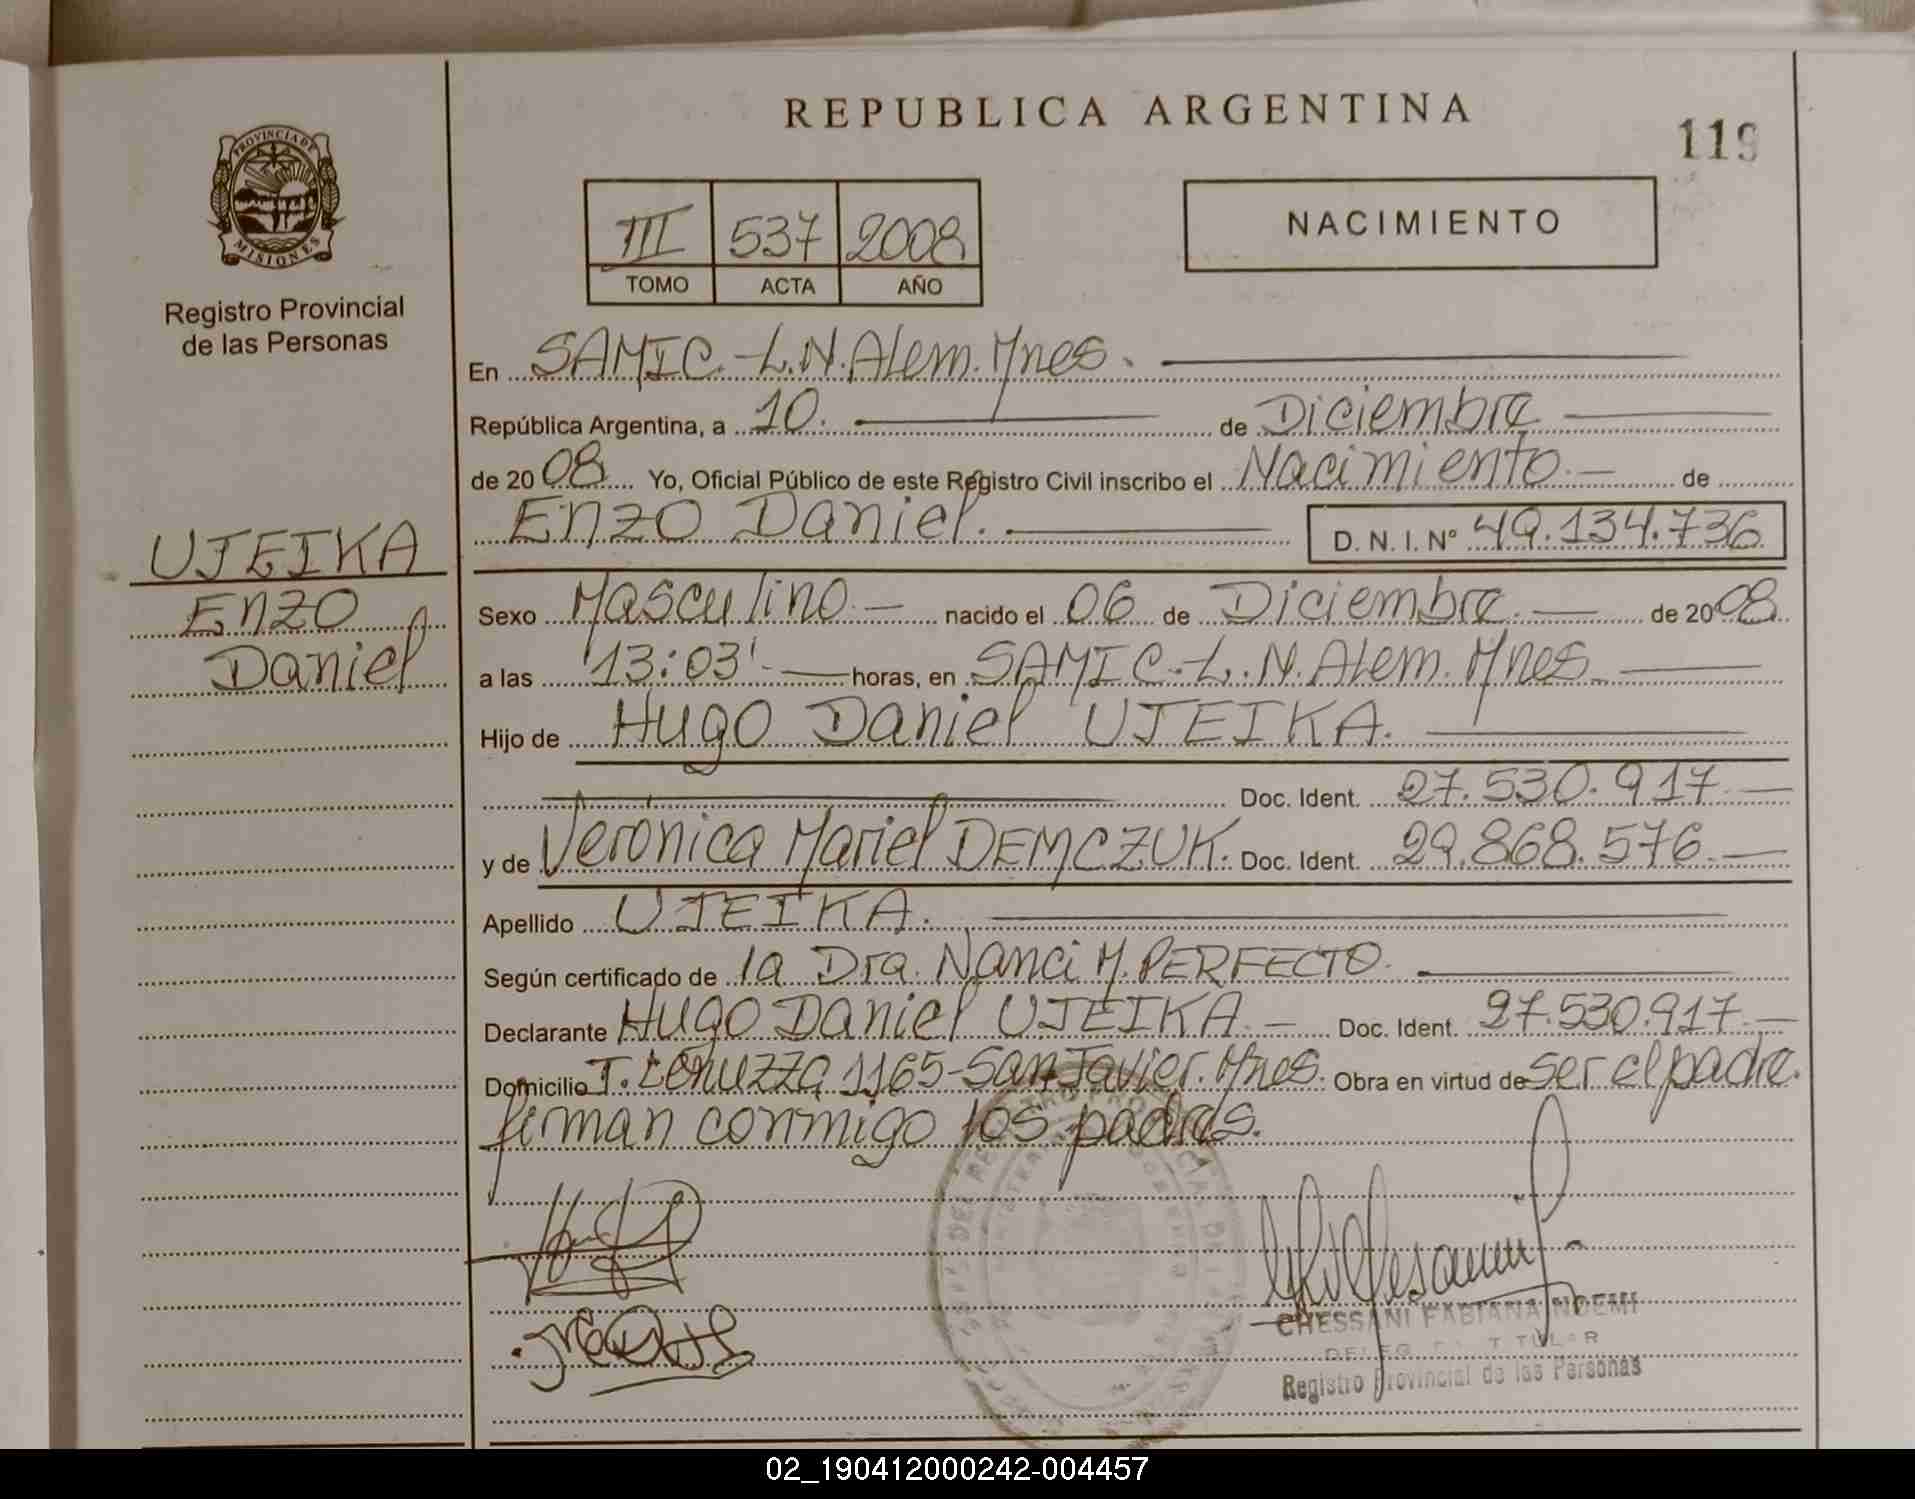 REPUBLICA ARGENTINA
119
PROVINCIA DE
MISIONES
Registro Provincial
de las Personas
III 537 2008
TOMO ACTA AÑO
NACIMIENTO
En SAMIC.-L.N.Alem.Mnes.
República Argentina, a 10. de Diciembre
de 2008 Yo, Oficial Público de este Registro Civil inscribo el Nacimiento.- de
Enzo Daniel. D. N. I. N° 49.134.736
UJEIKA
Enzo
Daniel
Sexo Masculino.- nacido el 06 de Diciembre.- de 2008
a las 13:03'.- horas, en SAMIC.-L.N.Alem.Mnes.
Hijo de Hugo Daniel UJEIKA.
Doc. Ident. 27.530.917.-
y de Verónica Mariel DEMCZUK. Doc. Ident. 29.868.576.-
Apellido UJEIKA.
Según certificado de la Dra. Nanci M. PERFECTO.
Declarante Hugo Daniel UJEIKA.- Doc. Ident. 27.530.917.-
Domicilio 1165-San Javier.Mnes. Obra en virtud de ser el padre.
firman conmigo los padres.
CHESSANI FABIANA NOEMI
TITULAR
Registro Provincial de las Personas
02_190412000242-004457